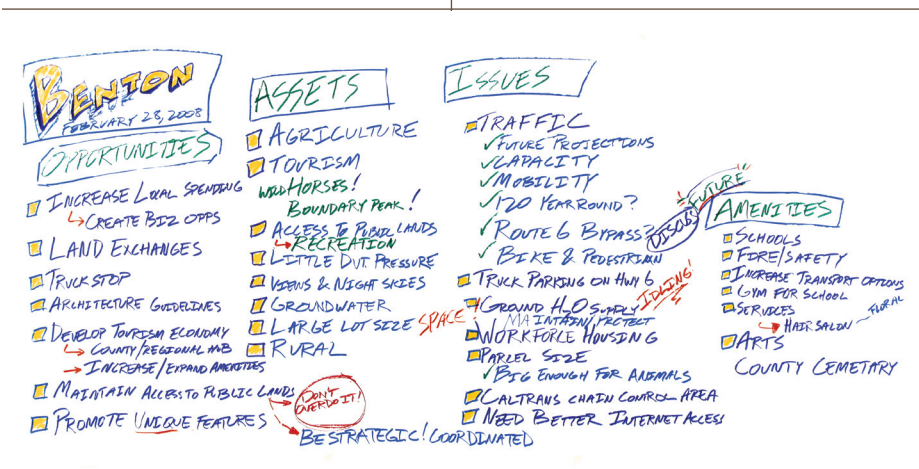 BENTON
FEBRUARY 28, 2008
OPPORTUNITIES
INCREASE LOCAL SPENDING
CREATE BIZ OPPS
LAND EXCHANGES
TRUCK STOP
ARCHITECTURE GUIDELINES
DEVELOP TOURISM ECONOMY
COUNTY/REGIONAL HUB
INCREASE/EXPAND AMENITIES
MAINTAIN ACCESS TO PUBLIC LANDS
DON'T
OVERDO IT!
BE STRATEGIC! COORDINATED
PROMOTE UNIQUE FEATURES
ASSETS
AGRICULTURE
TOURISM
WILD HORSES!
BOUNDARY PEAK!
ACCESS TO PUBLIC LANDS
RECREATION
LITTLE DVT PRESSURE
VIEWS & NIGHT SKIES
GROUNDWATER
LARGE LOT SIZE SPACE!
RURAL
ISSUES
TRAFFIC
FUTURE PROJECTIONS
CAPACITY
MOBILITY
120 YEAR ROUND?
ROUTE 6 BYPASS?
BIKE & PEDESTRIAN
TRUCK PARKING ON HWY 6
IDLING!
GROUND H2O SUPPLY
MAINTAIN/PROTECT
WORKFORCE HOUSING
PARCEL SIZE
BIG ENOUGH FOR ANIMALS
CALTRANS CHAIN CONTROL AREA
NEED BETTER INTERNET ACCESS
DISCUSS
FUTURE
AMENITIES
SCHOOLS
FIRE/SAFETY
INCREASE TRANSPORT OPTIONS
GYM FOR SCHOOL
SERVICES
HAIR SALON - FLORAL
ARTS
COUNTY CEMETARY